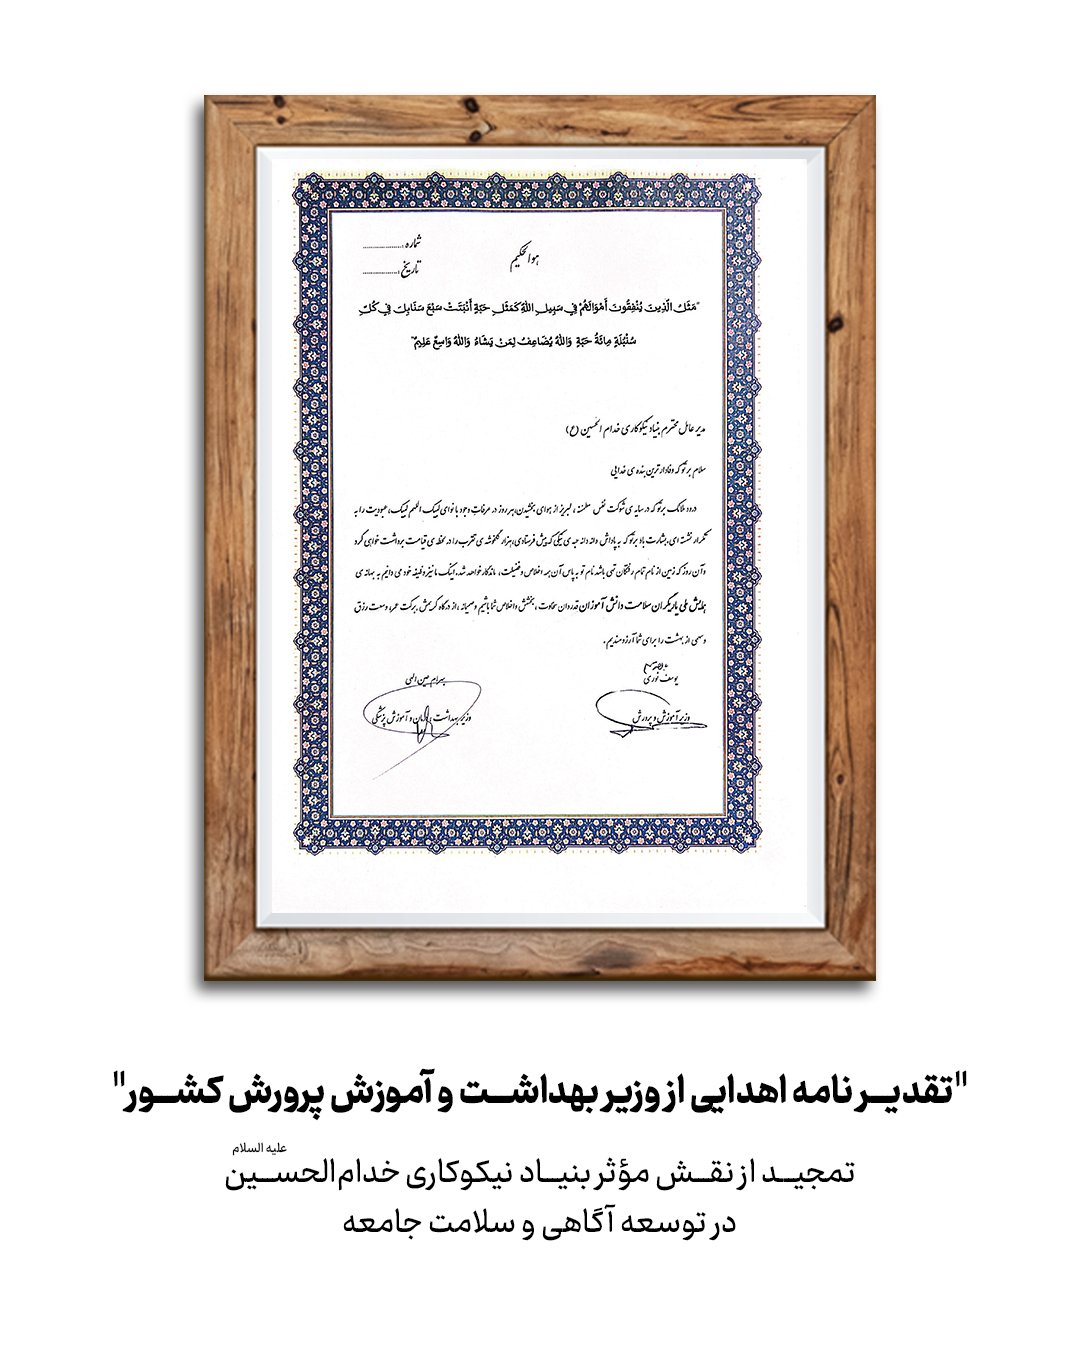 شماره :
هو الحکیم
تاریخ :
"مَثَلُ الَّذِينَ يُنْفِقُونَ أَمْوَالَهُمْ فِي سَبِيلِ اللَّهِ كَمَثَلِ حَبَّةٍ أَنْبَتَتْ سَبْعَ سَنَابِلَ فِي كُلِّ
سُنْبُلَةٍ مِائَةُ حَبَّةٍ وَاللَّهُ يُضَاعِفُ لِمَنْ يَشَاءُ وَاللَّهُ وَاسِعٌ عَلِيمٌ"
مدیر عامل محترم بنیاد نیکوکاری خدام الحسین (ع)
سلام بر تو که وفادارترین بنده ی خدایی
درود ملائک بر تو که در سایه ی شوکت نفس مطمئنه ، لبریز از هوای بخشیدن، هر روز در عرفات وجود با نوای لبیک اللهم لبیک، عبودیت را به
تکرار نشسته ای. بشارت باد بر تو که به پاداش دانه دانه حبه ی نیکی که پیش فرستادی، هزار گلخوشه ی تقرب را در لحظه ی قیامت برداشت خواهی کرد
و آن روز که زمین از نام تمام رفتگان تهی باشد نام تو به پاس آن همه اخلاص و فضیلت، ماندگار خواهد شد. اینک ما نیز وظیفه خود می دانیم به بهانه ی
همایش ملی یاریگران سلامت دانش آموزان قدردان سخاوت ، بخشش و اخلاص شما باشیم و صمیمانه ، از درگاه کریمش برکت عمر، وسعت رزق
و سهمی از بهشت را برای شما آرزومندیم.
یوسف نوری
بهرام عین الهی
وزیر آموزش و پرورش
وزیر بهداشت درمان و آموزش پزشکی
"تقدیر نامه اهدایی از وزیر بهداشت و آموزش پرورش کشور"
علیه السلام
تمجید از نقش مؤثر بنیاد نیکوکاری خدام‌الحسین
در توسعه آگاهی و سلامت جامعه